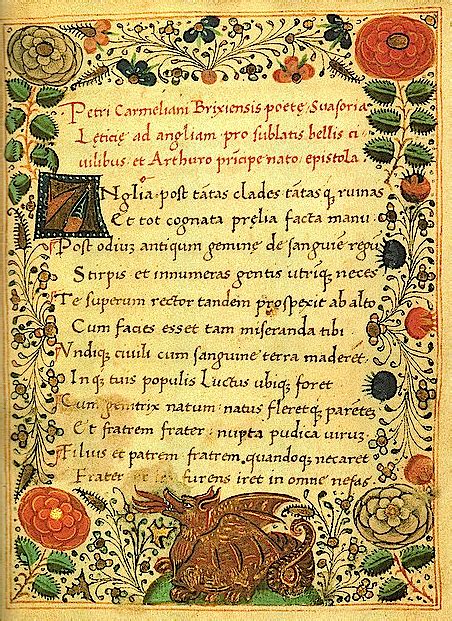 Petri Carmeliani Brixiensis poetę Suasoria
Lętición ad angliam pro sublatis bellis ci
uilibus et Arthuro principe nato epistola
Anglia post tātas clades tātasq; ruinas
Et tot cognata pręlia facta manu
Post odiuʒ antiquʒ geminę de sanguīe regū
Stirpis et innumeras gentis utriq; neces
Te superum rector tandem prospexit ab alto
Cum facies esset tam miseranda tibi
Vndiq; ciuili cum sanguine terra maderet
Inq; tuis populis Luctus ubiq; foret
Cum genitrix natum: natus fleretq; parētes
Et fratrem frater: nupta pudica uiruʒ
Filius et patrem fratrem quandoq; necaret
Frater et furens iret in omne nefas